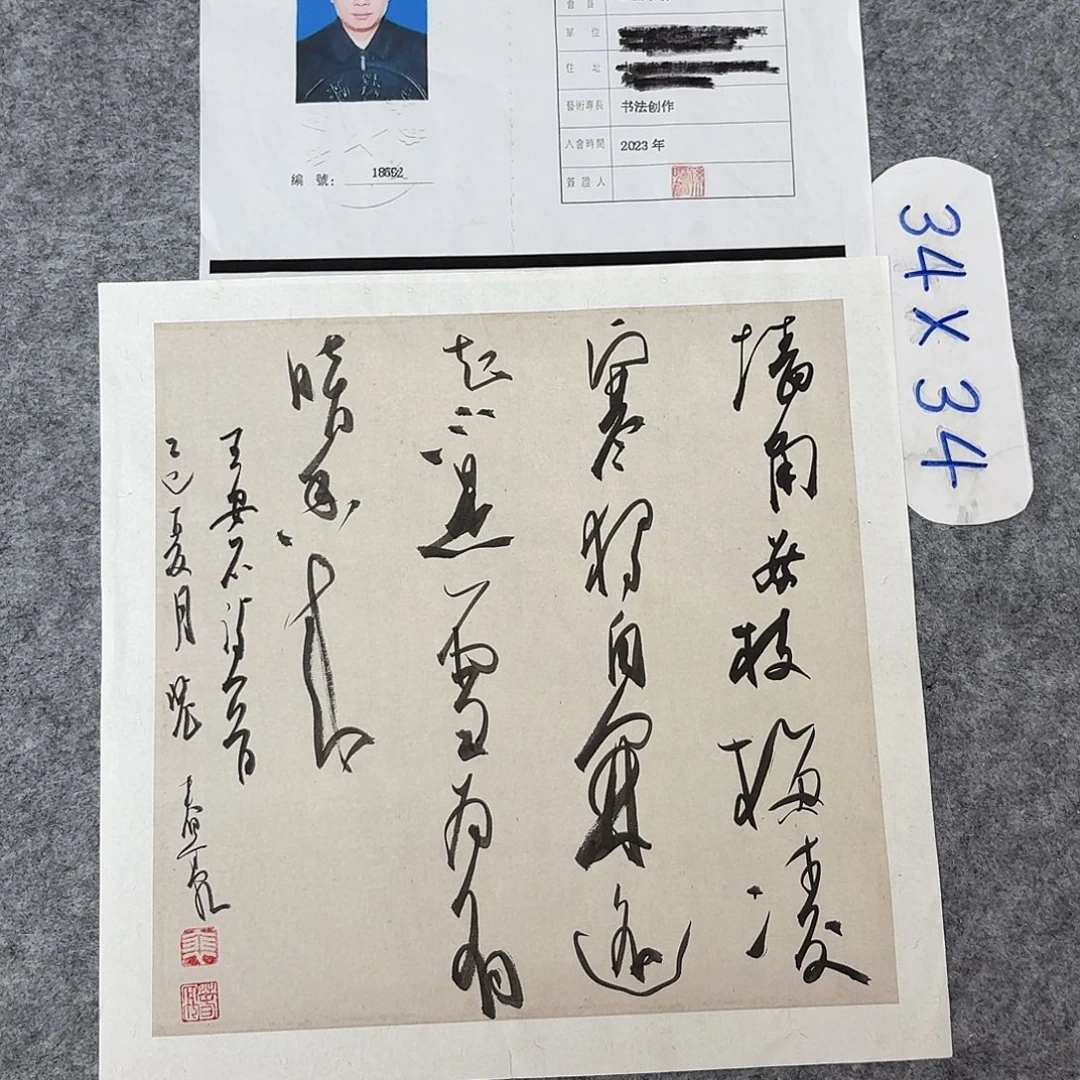 單位
住址
藝術專長 书法创作
入會時間 2023年
簽證人
編號: 18692
34X34
墙角数枝梅凌
寒獨自開遥
知不是雪为有
暗香来
王安石诗一首
乙巳夏月